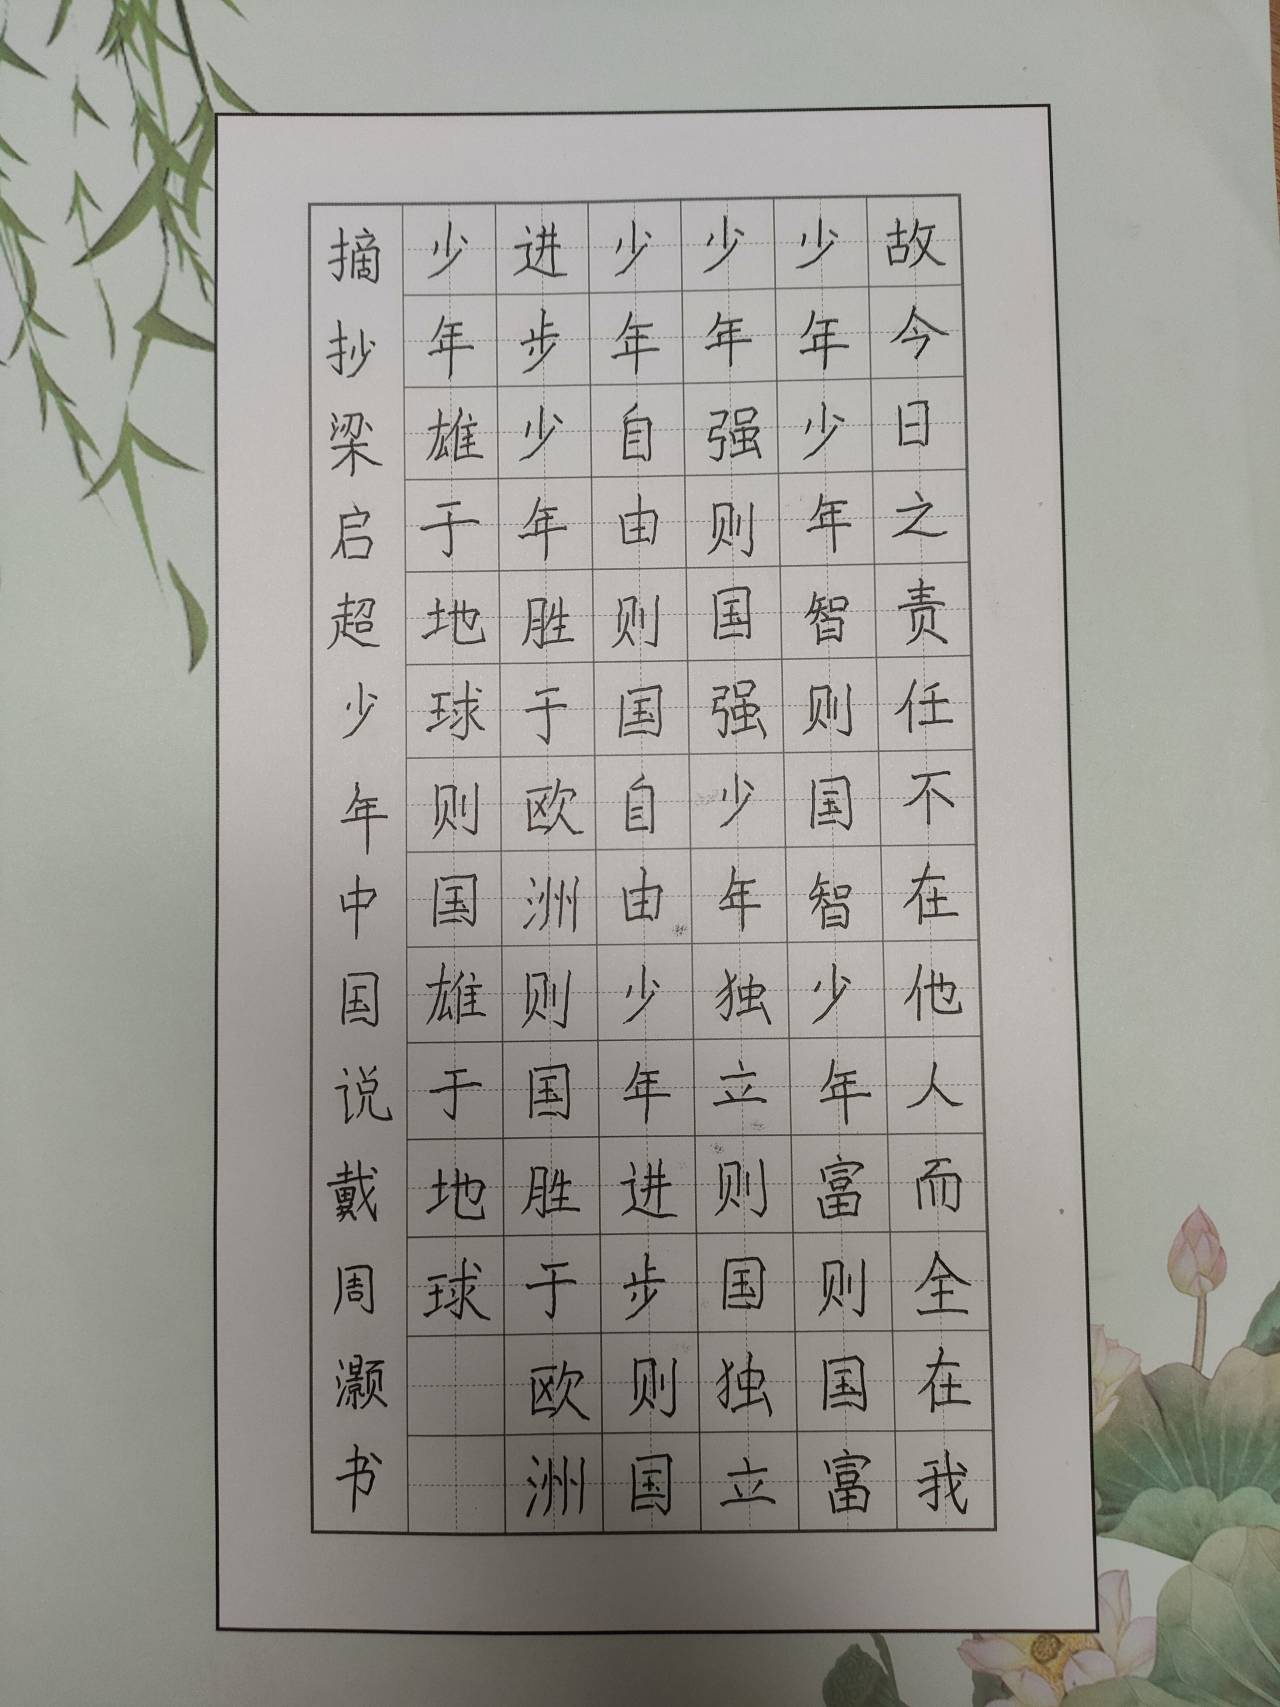 故今日之责任不在他人而全在我
少年少年智则国智少年富则国富
少年强则国强少年独立则国独立
少年自由则国自由少年进步则国
进步少年胜于欧洲则国胜于欧洲
少年雄于地球则国雄于地球
摘抄梁启超少年中国说戴周灏书